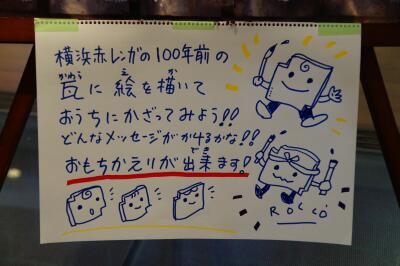 横浜赤レンガの100年前の
瓦に絵を描いて
かわら え か
おうちにかざってみよう!!
どんなメッセージがかけるかな!!
おもちかえりが出来ます!
でき
ROCCO